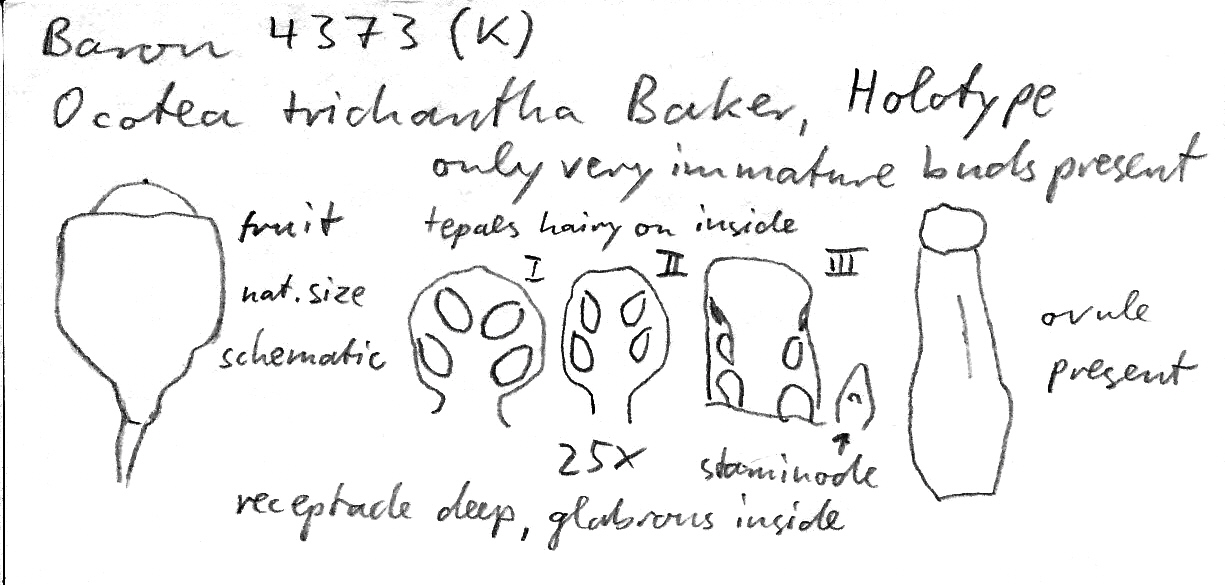 Baron 4373 (K)
Ocotea trichantha Baker, Holotype
only very immature buds present
fruit
nat. size
schematic
tepals hairy on inside
I
II
III
25x
staminode
ovule
present
receptacle deep, glabrous inside